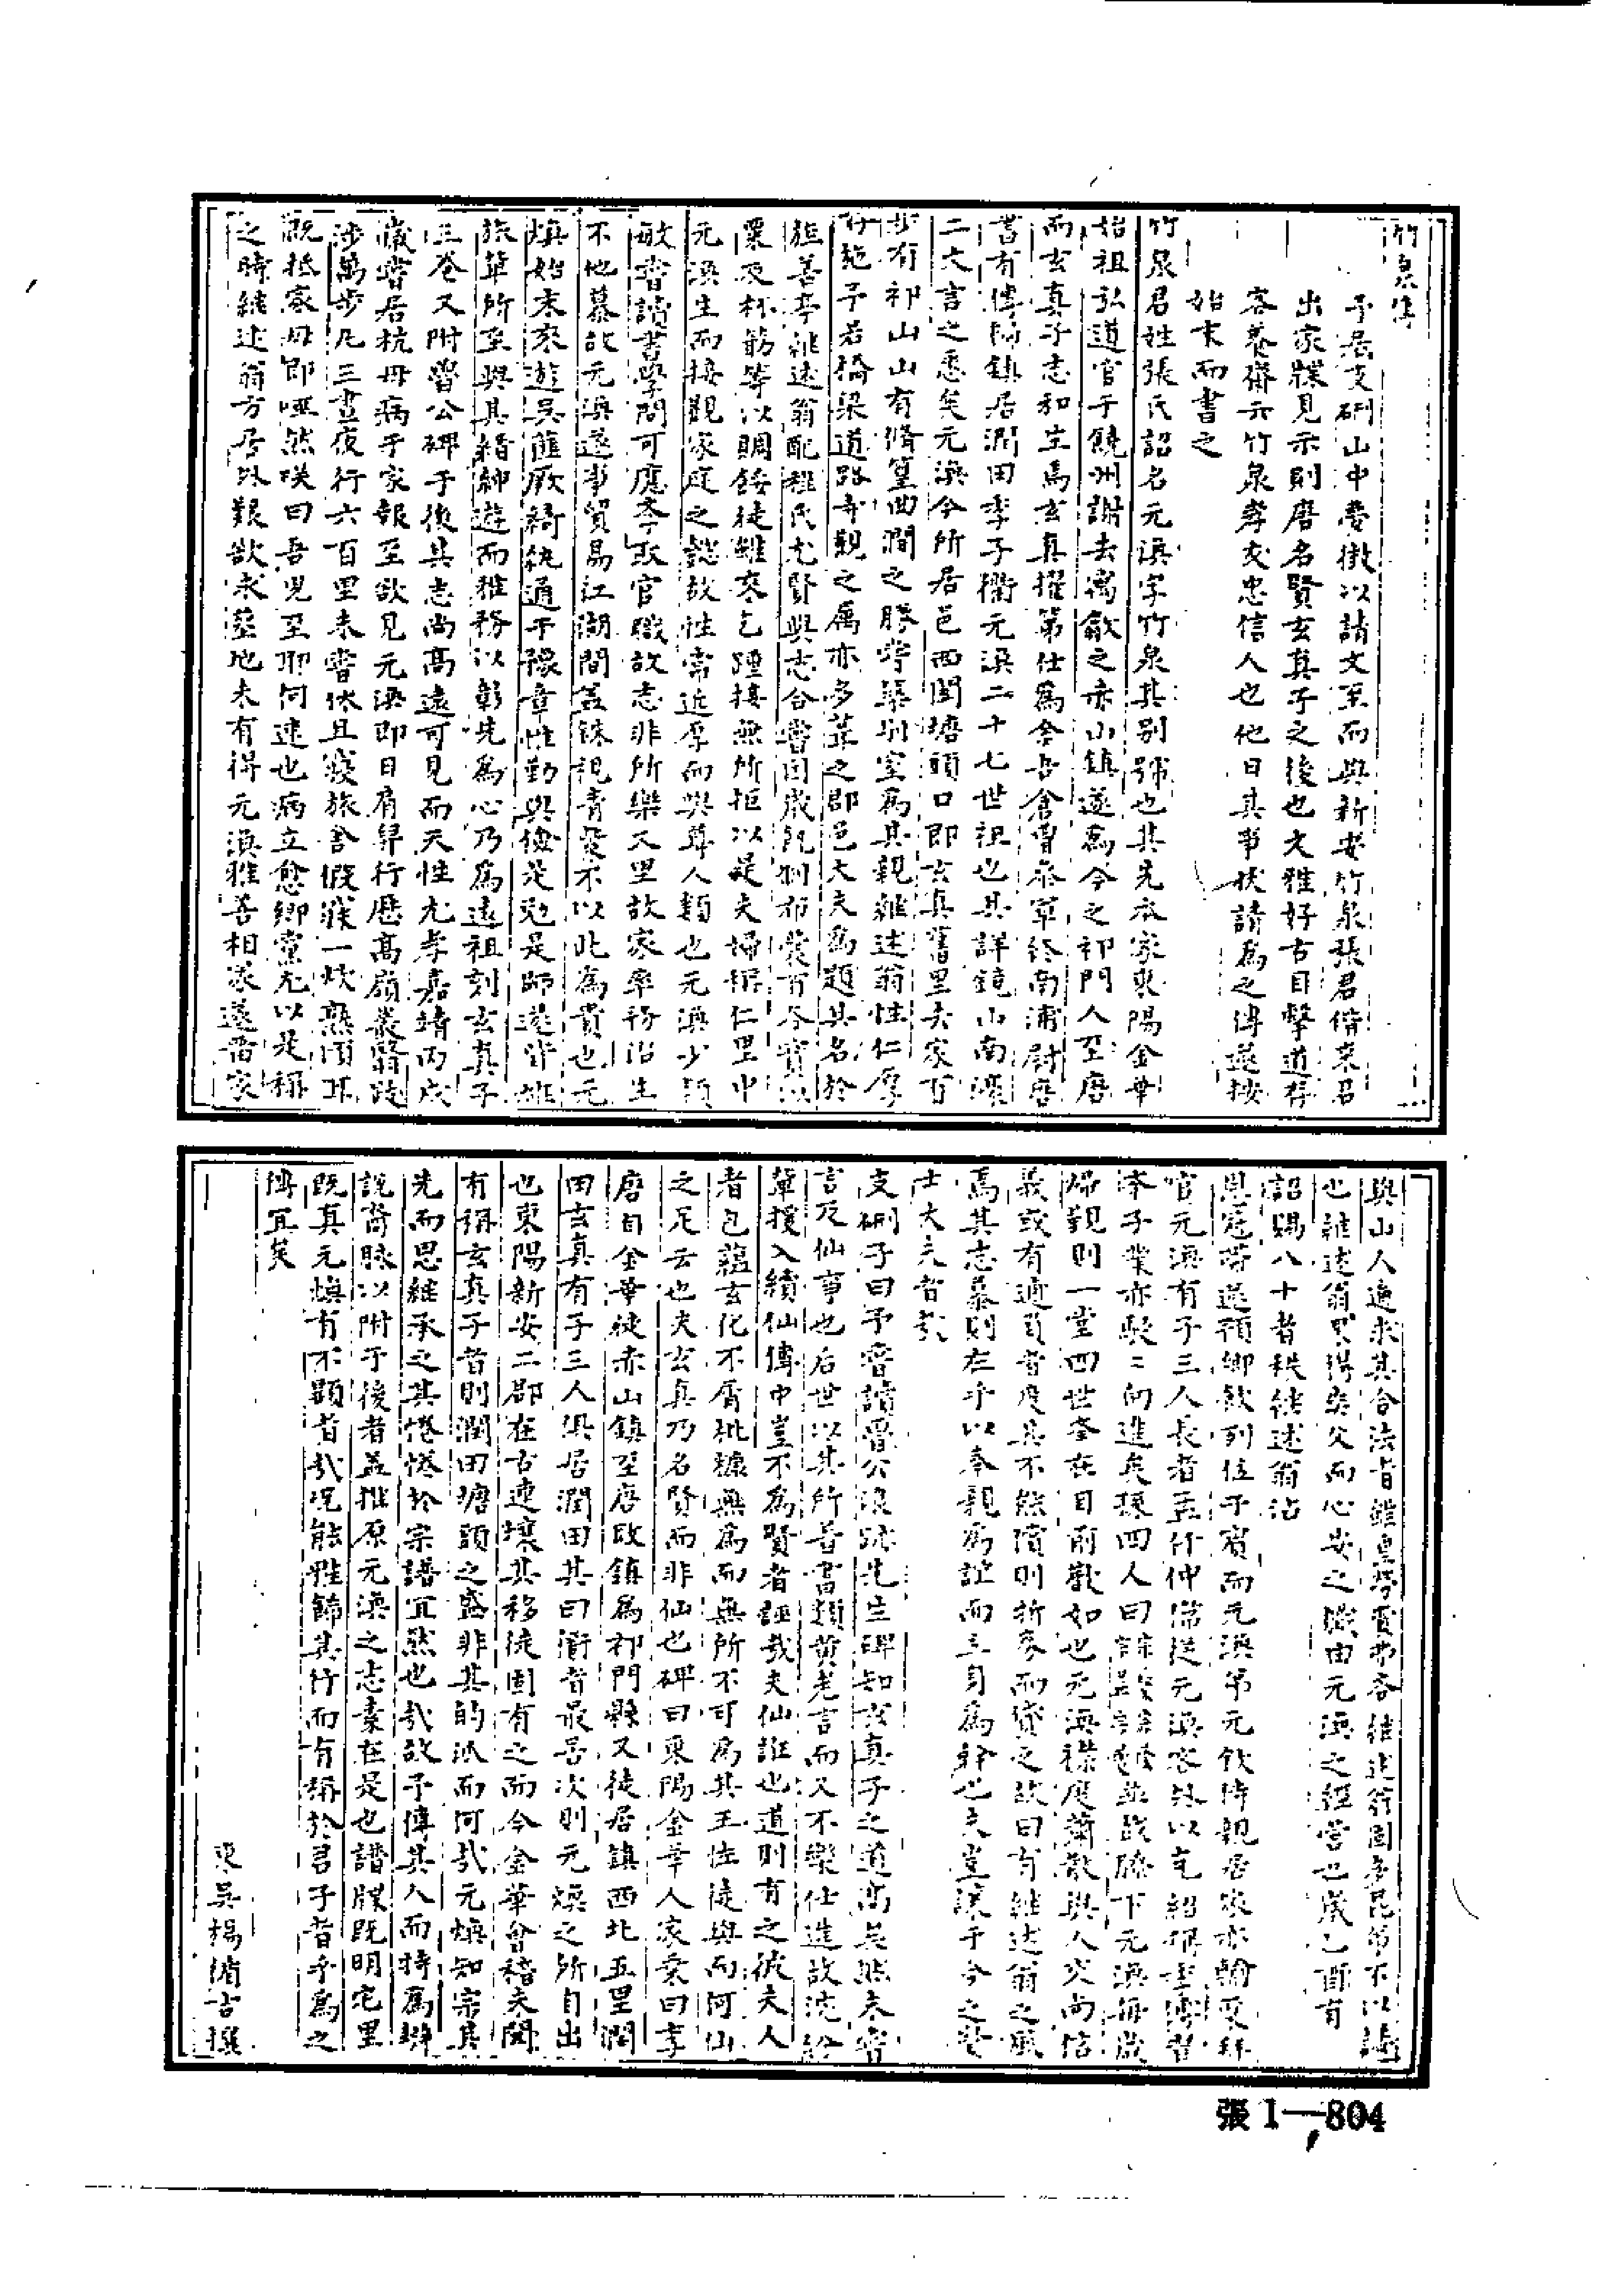 竹泉傳
予居支硎山中豊徴以請文至而與新安竹泉張君偕來君
出家牒見示則唐名賢玄真子之後也文雅好古目擊道存
容養齋云竹泉孝友忠信人也他日具事狀請為之傳遂按
始末而書之
竹泉君姓張氏詔名元渙字竹泉其别號也其先本家東陽金華
始祖弘道官于饒州謝去寓歙之赤山鎮遂為今之祁門人至唐
而玄真子志和生焉玄真擢第仕為令吾倉曹叅軍終南浦尉唐
書有傳 鎮居潤田季子衢元渙二十七世祖也其詳鏡山南濠
二文言之悉矣元渙今所居邑西閶塘頭口即玄真舊里去家百
步有祁山山有脩篁曲澗之勝嘗築别室為其親繼述翁性仁厚
好施予若橋梁道路寺觀之屬亦多葺之郡邑大夫為題其名於
旌善亭繼述翁配程氏尤賢與志合嘗因歲飢制布裳百 寳以
粟及杯筯等以賙餒徒雖衆乞踵接無所拒以是夫婦稱仁里中
元渙生而接觀家庭之懿故性常近厚而與尊人類也元渙少頴
敏嘗讀書學問可應季 官職故志非所樂又里故家率務治生
不他慕故元渙遂事貿易江湖間盖銖視青蚨不以此為賁也元
煥始末來遊吳 厥 統通于豫章惟勤與儉是勉是師遂皆雄
旅筆所至與其縉紳遊而雅務以彰先為心乃為遠祖刻玄真子
三卷又附魯公碑于後其志尚高遠可見而天性尤孝嘉靖丙戌
歲嘗居杭母病于家報至欲見元渙即日肩舁行歷高嶺叢 跋
涉萬步凡三晝夜行六百里未嘗休且寢旅舍假寐一炊熟 耳
既抵家母即啞然咲曰吾兒至耶何速也病立愈鄉黨尤以是稱
之時繼述翁方居外艱欲求塟地未有得元渙雅善相家遂 家
與山人遍求其合法者雖 費弗吝繼述翁固多昆弟不以
也繼述翁 塟父而心安之 由元渙之經營也歲乙酉有
詔賜八十者秩繼述翁沾
恩冠帶遂預鄉飲列位于賓而元渙弟元欽侍親居家亦翰粟拜
官元渙有子三人長者孟仟仲 從元渙客外以 紹
李子業亦駸〻向進矣孫四人曰 並戲膝下元渙每歲
歸覲則一堂四世奎在目前歡如也元渙襟度蕭散與人交尚信
義或有逋負者度其不能償則折券而 之故曰有繼述翁之風
焉其志慕則在乎以奉親為誼而立身為幹也夫豈讓于今之
士大夫者哉
支硎子曰予嘗讀魯公浪跡先生碑知玄真子之道高矣然未嘗
言及仙事也后世以其所著書類黄老言而又不樂仕進故
援入續仙傳中豈不為賢者誣哉夫仙誰也道則有之彼夫人
者包藴玄化不屑秕糠無為而無所不可為其王 徒與而何仙
之足云也夫玄真乃名賢而非仙也碑曰東陽金華人家乘曰李
唐自金華徙赤山鎮至唐改鎮為祁門縣又徙居鎮西北五里潤
田玄真有子三人俱居潤田其曰衢者最 次則元煥之所自出
也東陽新安二郡在古連壤其移徙固有之而今金華會稽未聞
有稱玄真子者則潤田塘頭之盛非其的派而何哉元煥知宗其
先而思繼承之其惓惓於宗譜宜然也哉故予傳其人而特為辯
說脉以附于後者盖推原元渙之志素在是也譜牒既明宅里
既真元煥有不顯者哉况能雅飾其行而有稱於君子者乎為之
傳宜矣
東吳楊循吉撰
張1—804